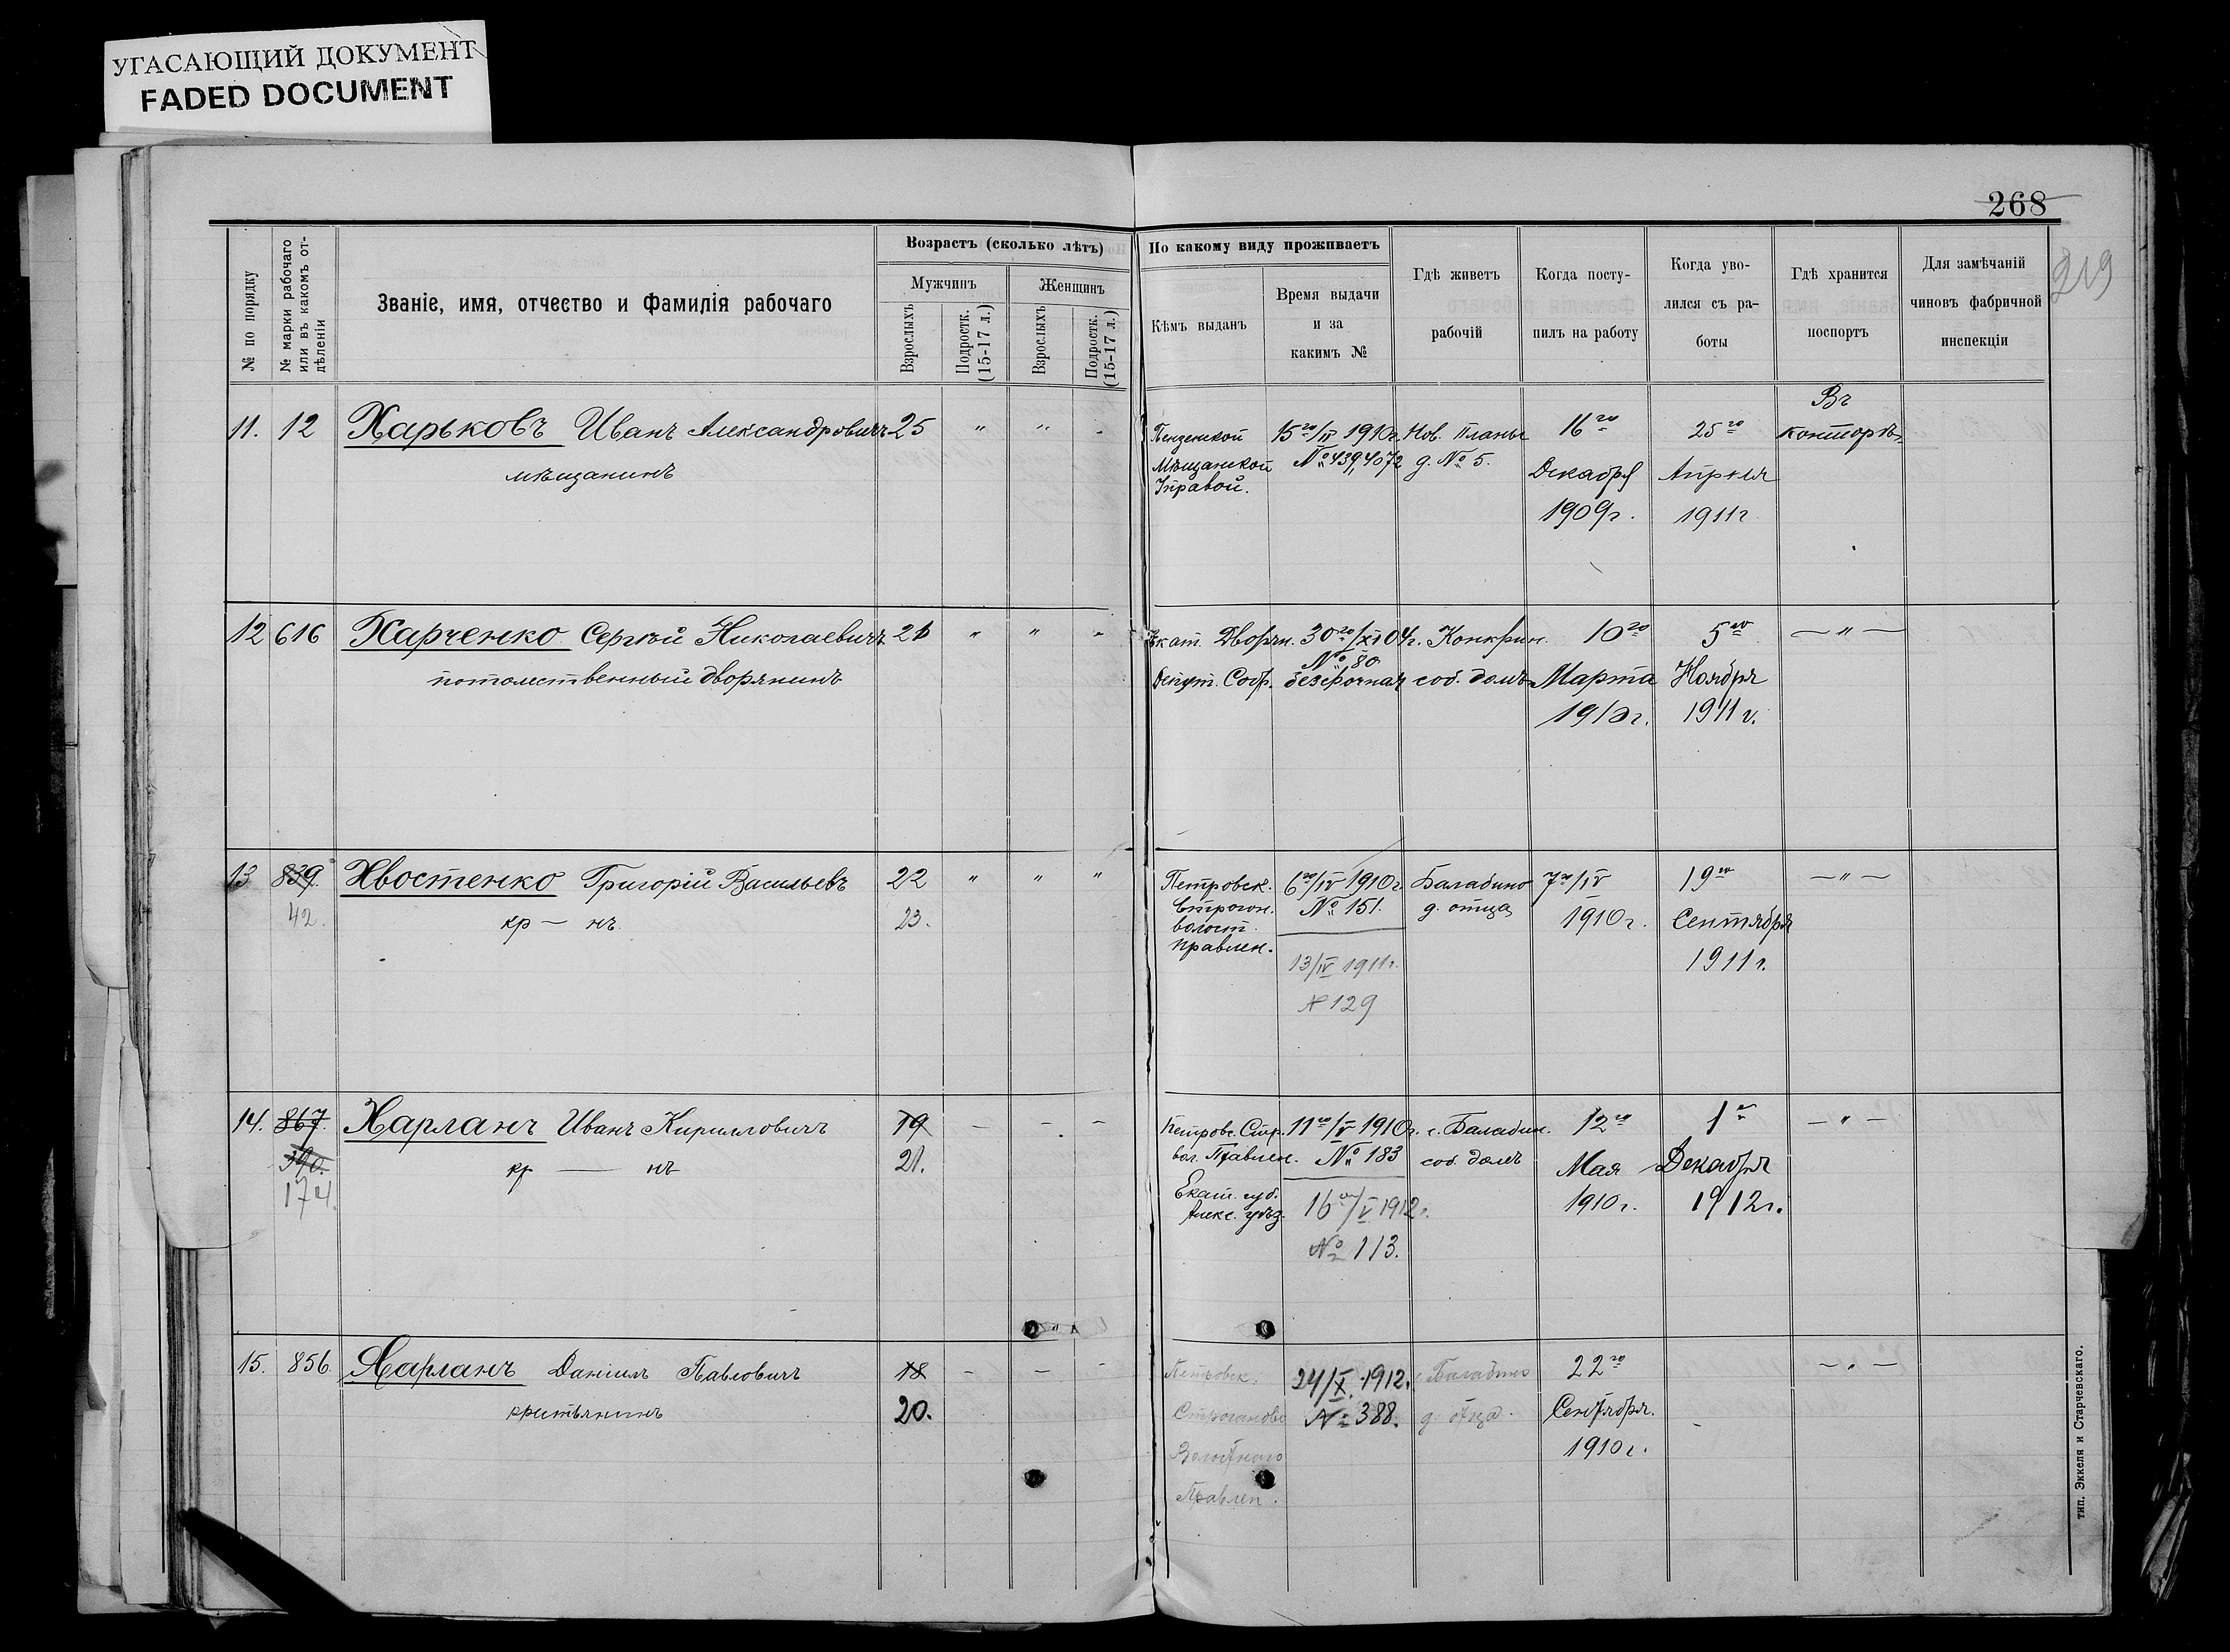 УГАСАЮЩИЙ ДОКУМЕНТ
FADED DOCUMENT
268
219
№ по порядку
№ марки рабочаго
или въ какомъ от-
дѣленіи
Званіе, имя, отчество и фамилія рабочаго
Возрастъ (сколько лѣтъ)
Мужчинъ
Женщинъ
Взрослыхъ
Подростк.
(15-17 л.)
Взрослыхъ
Подростк.
(15-17 л.)
По какому виду проживаетъ
Кѣмъ выданъ
Время выдачи
и за
какимъ №
Гдѣ живетъ
рабочій
Когда посту-
пилъ на работу
Когда уво-
лился съ ра-
боты
Гдѣ хранится
поспортъ
Для замѣчаній
чиновъ фабричной
инспекціи
11. 12 Харьковъ Иванъ Александровичъ 25 " " -
мѣщанинъ
Пензенской
Мѣщанской
Управой.
15го/IV 1910г.
№ 439,4072
Нов. Планы
д. № 5.
16го
Декабря
1909г.
25го
Апрѣля
1911г
Въ
конторѣ
12 616 Харченко Сергѣй Николаевичъ 21 " " "
потомственный дворянинъ
Екат. Дворян.
Депут. Собр.
30го/XI 04г.
№ 80
безсрочная
Конкрин.
соб. домъ
10го
Марта
1910г.
5го
Ноября
1911г.
— " —
13 839. Хвостенко Григорій Васильевъ 22 " " "
42. кр — нъ 23.
Петровск.
Строгон.
волост.
правлен.
6го/IV 1910г
№ 151.
13/IV 1911г.
№ 129
Балабино
д. отца
7го/IV
1910г.
19го
Сентября
1911г.
— " —
14. 867. Харланъ Иванъ Кирилловичъ 19 — - —
390. кр — нъ 21.
174.
Петровс. Стр.
вол. Правлен.
Екат. губ.
Алекс. уѣз.
11го/V 1910г.
№ 183
16го/V 1912г.
№ 113.
с. Балабин.
соб. домъ
12го
Мая
1910г.
1го
Декабря
1912г.
— " —
15. 856. Харланъ Даніилъ Павловичъ 18 — — -
крестьянинъ 20.
Петровск.
Строгановс
Волостного
Правлен.
24/X 1912.
№ 388.
с. Балабино
д. отца.
22го
Сентября.
1910г.
— " —
тип. Эккеля и Старчевскаго.